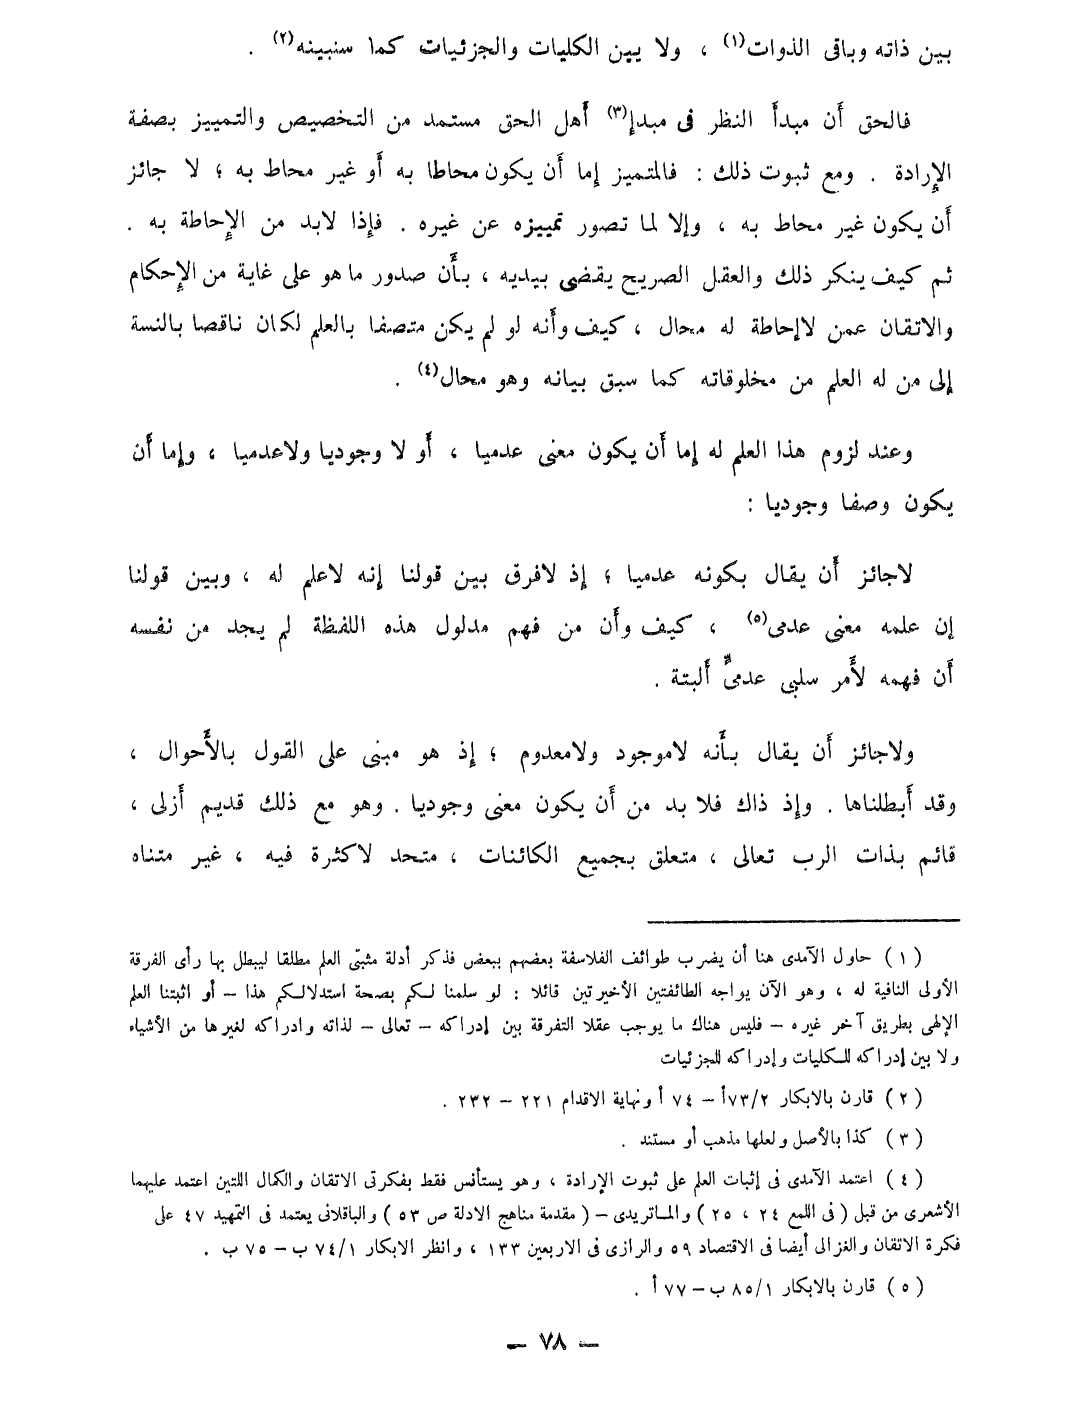 بين ذاته وباقى الذوات(١) ، ولا يبن الكليات والجزئيات كما سنبينه(٢) .
فالحق أن مبدأ النظر فى مبدإ(٣) أهل الحق مستمد من التخصيص والتمييز بصفة
الإرادة . ومع ثبوت ذلك : فالمتميز إما أن يكون محاطا به أو غير محاط به ؛ لا جائز
أن يكون غير محاط به ، وإلا لما تصور تمييزه عن غيره . فإذا لابد من الإحاطة به .
ثم كيف ينكر ذلك والعقل الصريح يقضى ببديه ، بأن صدور ما هو على غاية من الإحكام
والاتقان عمن لاإحاطة له محال ، كيف وأنه لو لم يكن متصفا بالعلم لكان ناقصا بالنسة
إلى من له العلم من مخلوقاته كما سبق بيانه وهو محال(٤) .
وعند لزوم هذا العلم له إما أن يكون معنى عدميا ، أو لا وجوديا ولاعدميا ، وإما أن
يكون وصفا وجوديا :
لاجائز أن يقال بكونه عدميا ؛ إذ لافرق بين قولنا إنه لاعلم له ، وبين قولنا
إن علمه معنى عدمى(٥) ، كيف وأن من فهم مدلول هذه اللفظة لم يجد من نفسه
أن فهمه لأمر سلبى عدمىٌّ ألبتة .
ولاجائز أن يقال بأنه لاموجود ولامعدوم ؛ إذ هو مبنى على القول بالأحوال ،
وقد أبطلناها . وإذ ذاك فلا بد من أن يكون معنى وجوديا . وهو مع ذلك قديم أزلى ،
قائم بذات الرب تعالى ، متعلق بجميع الكائنات ، متحد لاكثرة فيه ، غير متناه
( ١ ) حاول الآمدى هنا أن يضرب طوائف الفلاسفة بعضهم ببعض فذكر أدلة مثبتى العلم مطلقا ليبطل بها رأى الفرقة
الأولى النافية له ، وهو الآن يواجه الطائفتين الأخيرتين قائلا : لو سلمنا لكم بصحة استدلالكم هذا – أو اثبتنا العلم
الإلهى بطريق آخر غيره – فليس هناك ما يوجب عقلا التفرقة بين إدراكه – تعالى – لذاته وادراكه لغيرها من الأشياء
ولا بين إدراكه للكليات وإدراكه للجزئيات
( ٢ ) قارن بالابكار ٧٣/٢أ – ٧٤ أ ونهاية الاقدام ٢٢١ – ٢٣٢ .
( ٣ ) كذا بالأصل ولعلها مذهب أو مستند .
( ٤ ) اعتمد الآمدى فى إثبات العلم على ثبوت الإرادة ، وهو يستأنس فقط بفكرتى الاتقان والكمال اللتين اعتمد عليهما
الأشعرى من قبل ( فى اللمع ٢٤ ، ٢٥ ) والماتريدى – ( مقدمة مناهج الادلة ص ٥٣ ) والباقلانى يعتمد فى التمهيد ٤٧ على
فكرة الاتقان والغزالى أيضا فى الاقتصاد ٥٩ والرازى فى الاربعين ١٣٣ ، وانظر الابكار ٧٤/١ ب – ٧٥ ب .
( ٥ ) قارن بالابكار ٨٥/١ ب – ٧٧ أ .
– ٧٨ –